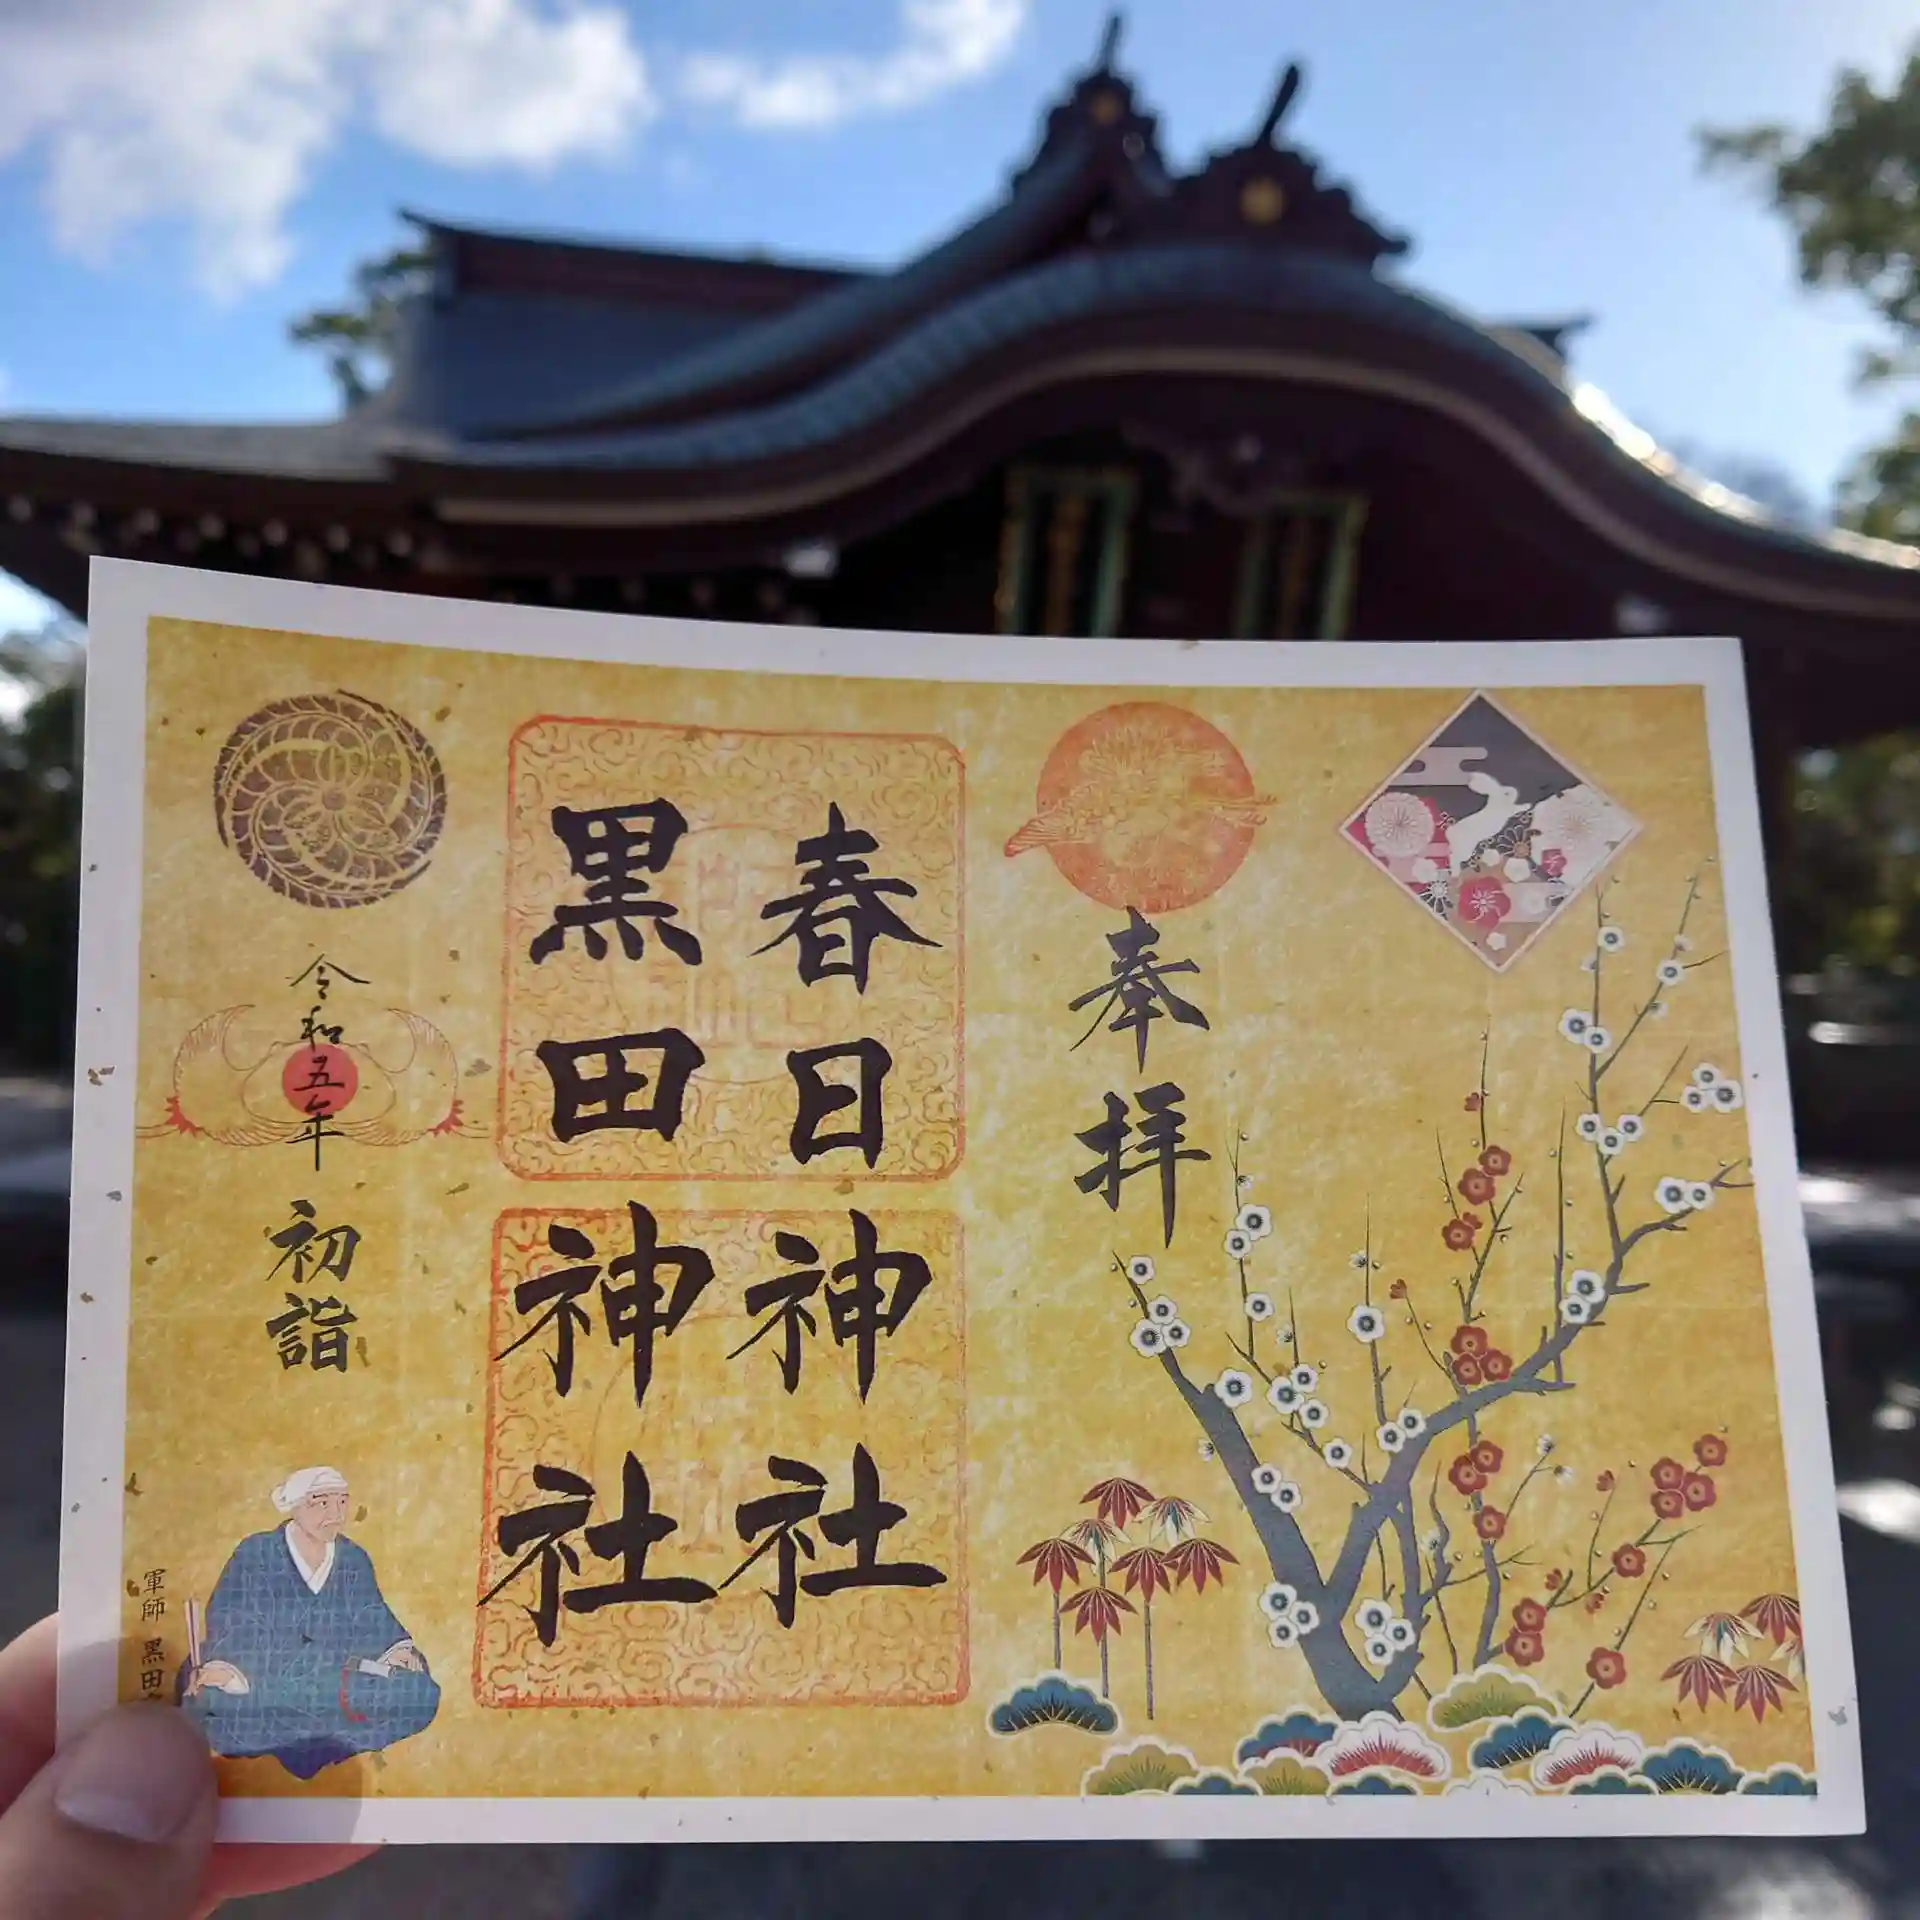 奉拝
春日神社
黒田神社
令和五年
初詣
軍師 黒田